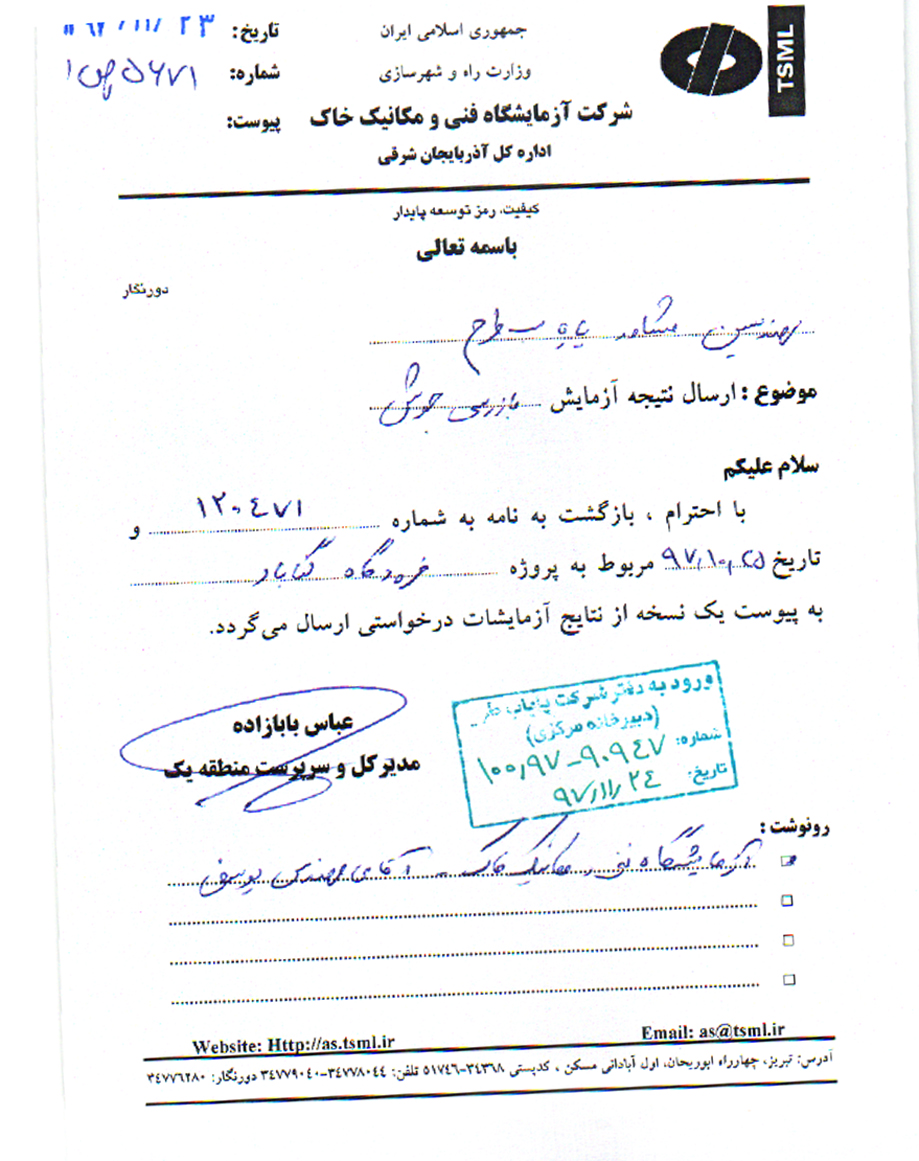 TSML
جمهوری اسلامی ایران
وزارت راه و شهرسازی
شرکت آزمایشگاه فنی و مکانیک خاک
اداره کل آذربایجان شرقی
تاریخ: ۲۳ / ۱۱ /
شماره: ۵۶۷۱
پیوست:
کیفیت، رمز توسعه پایدار
باسمه تعالی
دورنگار
مهندسین مشاور طرح
موضوع: ارسال نتیجه آزمایش بازرسی جوش
سلام علیکم
با احترام ، بازگشت به نامه به شماره ۱۲۰۴۷۱ و
تاریخ ۹۷,۱۰,۲۵ مربوط به پروژه فرودگاه گناباد
به پیوست یک نسخه از نتایج آزمایشات درخواستی ارسال می‌گردد.
عباس بابازاده
مدیرکل و سرپرست منطقه یک
ورود به دفتر شرکت پایاب طرح
(دبیرخانه مرکزی)
شماره: ۱۰۰,۹۷-۹۰۹۴۷
تاریخ: ۹۷,۱۱,۲۴
رونوشت:
آزمایشگاه فنی و مکانیک خاک - آقای مهندس
Website: Http://as.tsml.ir
Email: as@tsml.ir
آدرس: تبریز، چهارراه ابوریحان، اول آبادانی مسکن ، کدپستی ۳۴۳۶۸-۵۱۷۴۶ تلفن: ۳۴۷۷۸۰۴۴-۳۴۷۷۹۰۴۰ دورنگار: ۳۴۷۷۶۲۸۰